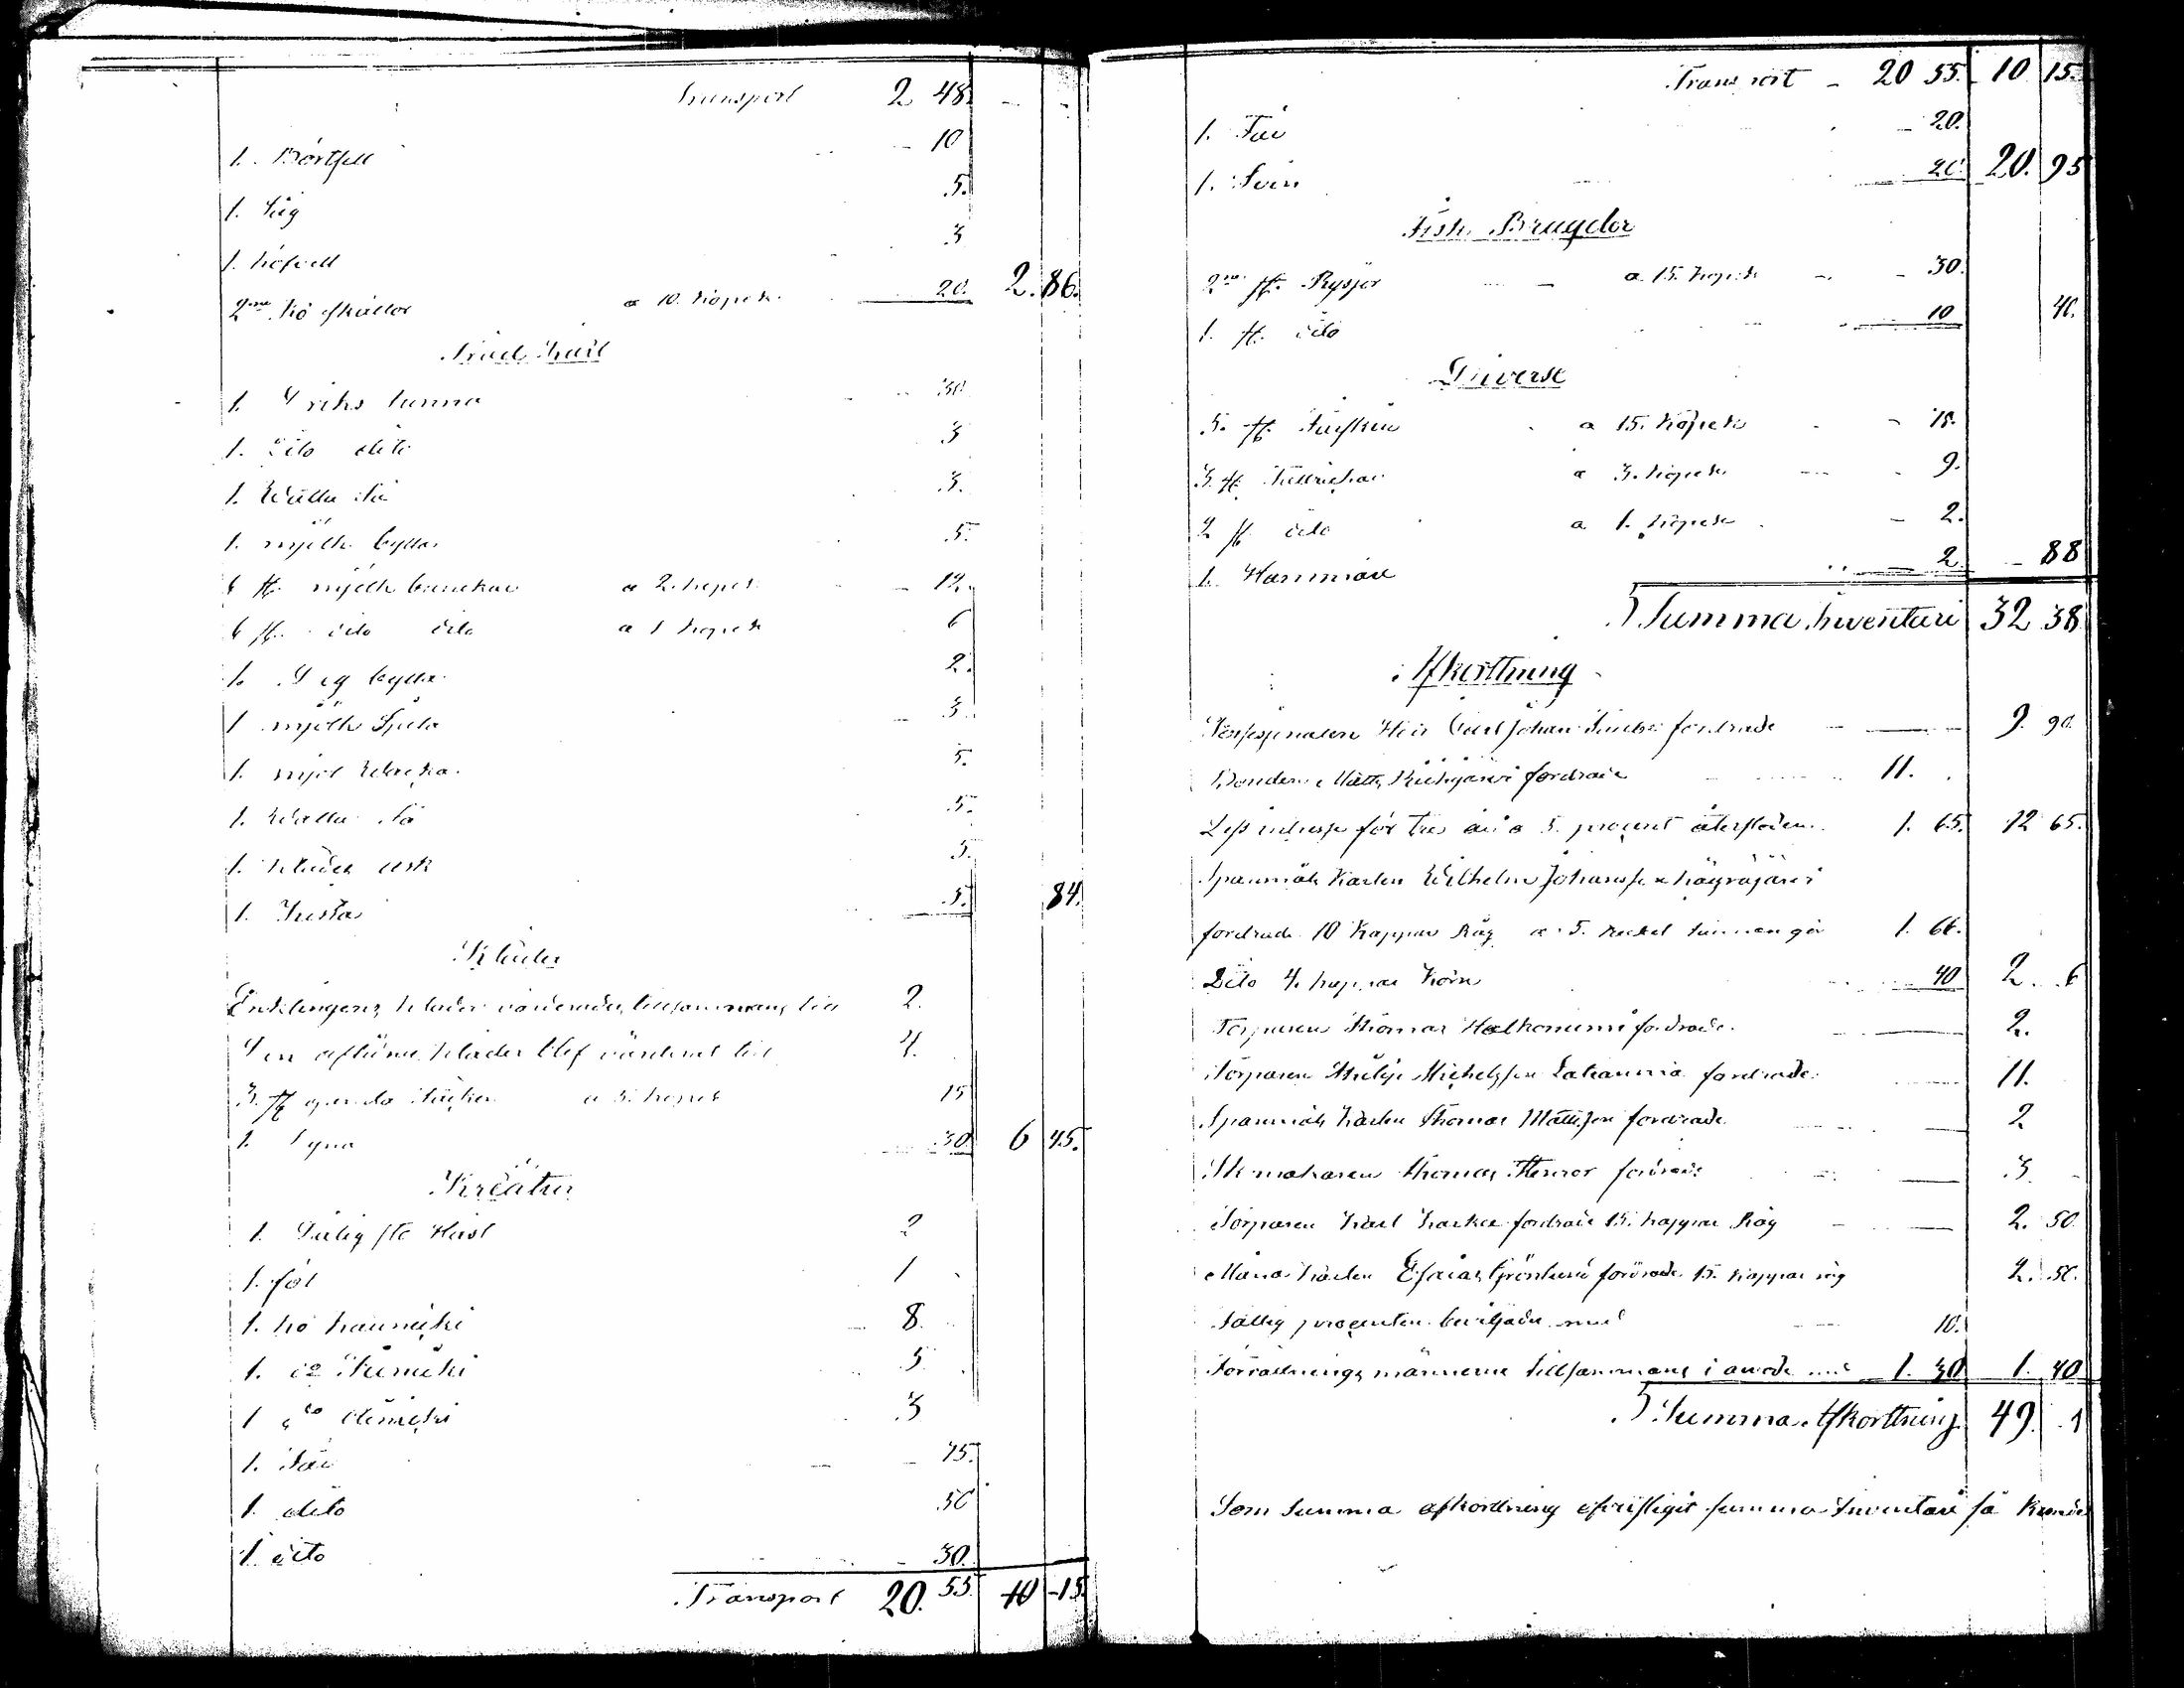 Transport 2 48. - -
1. Börtfell - 10
1. Säg 5.
1. höfvell 3
2ne Ko skällor a 10. kopek 20. 2. 86.
Träd Käril
1. Driks tunna 30
1. dito dito 3
1. Watten så 3.
1. mjölk bytta 5.
6 st. mjölk bunckar a 2. kopek - 12.
6 st. dito dito a 1 kopek 6
1. Deg bytta 2.
1 mjölk Spila 3.
1. mjöl 5.
1. Watten så 5.
1. kläder ask 3.
1. Kista 5. 84.
Kläder
Enklingens kläder värderades tillsammans till 2.
Den aflidnes kläder blef värderat till 4.
3. st gamla säckar a 5. kopek 15
1. Dyna 30. 6 45.
Kreatur
1. Dålig sto Häst 2
1. föl 1
1. ko haunicki 8.
1. do 5
1 do 3
1. Får 75.
1 dito 50
1. dito 30.
Transport 20. 55. 10 - 15.
Transport - 20 55. 10 15.
1. Får - 20.
1. Svin 20. 20. 95
Fisk Brugder
2ne st. Rysjor a 15. kopek - 30.
1. st. dito 10 40.
Diverse
5. st. a 15. kopek - 75.
3. st. a 3. kopek 9.
2 st dito a 1. kopek - 2.
1. Hammare 2 - 88
Summa Inventari 32 38
Afkorttning
Herr Carl Johan fordrade 9. 90.
Bonden Matts fordrade 11.
Dess intresse för tre år a 5. procent 1. 65. 12 65.
Spannmåls Karlen Wilhelm Johansson
fordrade 10 Kappar Råg a 5. Rubel tunnan gör 1. 66.
Dito 4. kappar Korn 40 2. 6
Torparen Thomas Halkonummi fordrade. 2.
Torparen Michelsson fordrade. 11.
Spannmåls karlen Thomas Mattsson fordrade 2
Skomakaren Thomas fordrade 3 -
Torparen Karl fordrade 15. kappar Råg 2. 50.
karlen Esaias Grönlund fordrade 15. kappar råg 2. 50.
Fattig procenten beviljades med 10.
Förrättnings männerne tillsammans i arvode med 1. 30 1. 40
Summa Afkorttning 49. 1
Som Summa afkorttning öfverstigit summa Inventari så kunde